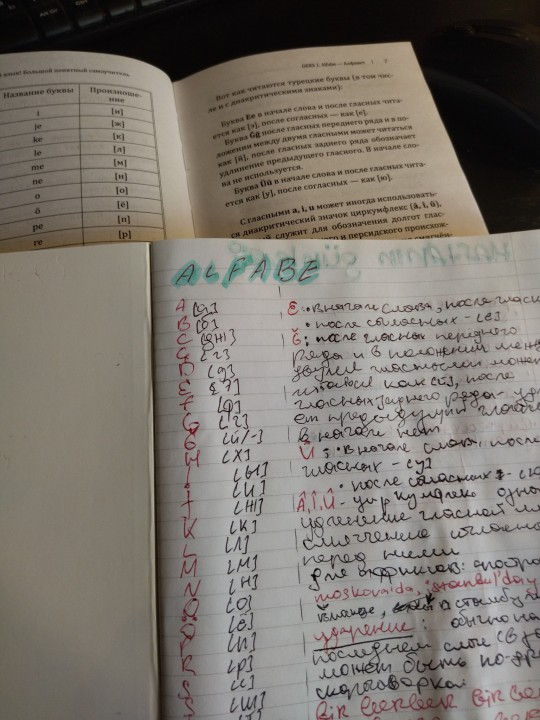 й язык! Большой понятный самоучитель
Название буквы Произношение
i [и]
je [ж]
ke [к]
le [л]
me [м]
ne [н]
o [о]
ö [ё]
pe [п]
re [р]
Вот как читаются турецкие буквы (в том чис-
ле и с диакритическими знаками):
Буква Ee в начале слова и после гласных чита-
ется как [э], после согласных — как [е].
Буква Ğğ после гласных переднего ряда и в по-
ложении между двумя гласными может читаться
как [й], после гласных заднего ряда обозначает
удлинение предыдущего гласного. В начале сло-
ва не используется.
Буква Üü в начале слова и после гласных чита-
ется как [у], после согласных — как [ю].
С гласными a, i, u может иногда использовать-
ся диакритический значок циркумфлекс (â, î, û),
служит для обозначения долгот глас-
и персидского происхож-
ALFABE
A [а]
B [б]
C [дж]
Ç [ч]
D [д]
E [э]
F [ф]
G [г]
Ğ [й/-]
H [х]
I [ы]
İ [и]
J [ж]
K [к]
L [л]
M [м]
N [н]
O [о]
Ö [ё]
P [п]
R [р]
S [с]
Ş [ш]
E: в начале слова, после гласн
после согласных - [е]
Ğ: после гласных переднего
ряда и в положении меж
двумя гласными может
читаться как [й], после
гласных заднего ряда - уд
ет предыдущий гласн
в начале нет.
Ü: в начале слова, после
гласных - [у]
после согласных - [ю
Â, Î, Û - циркумфлекс
удлинение гласной
смягчение согласно
перед ними
moskova'da, istanbul'da
ударение: обычно на
последнем слоге
может быть по-др
скороговорка
bir berber bir ber